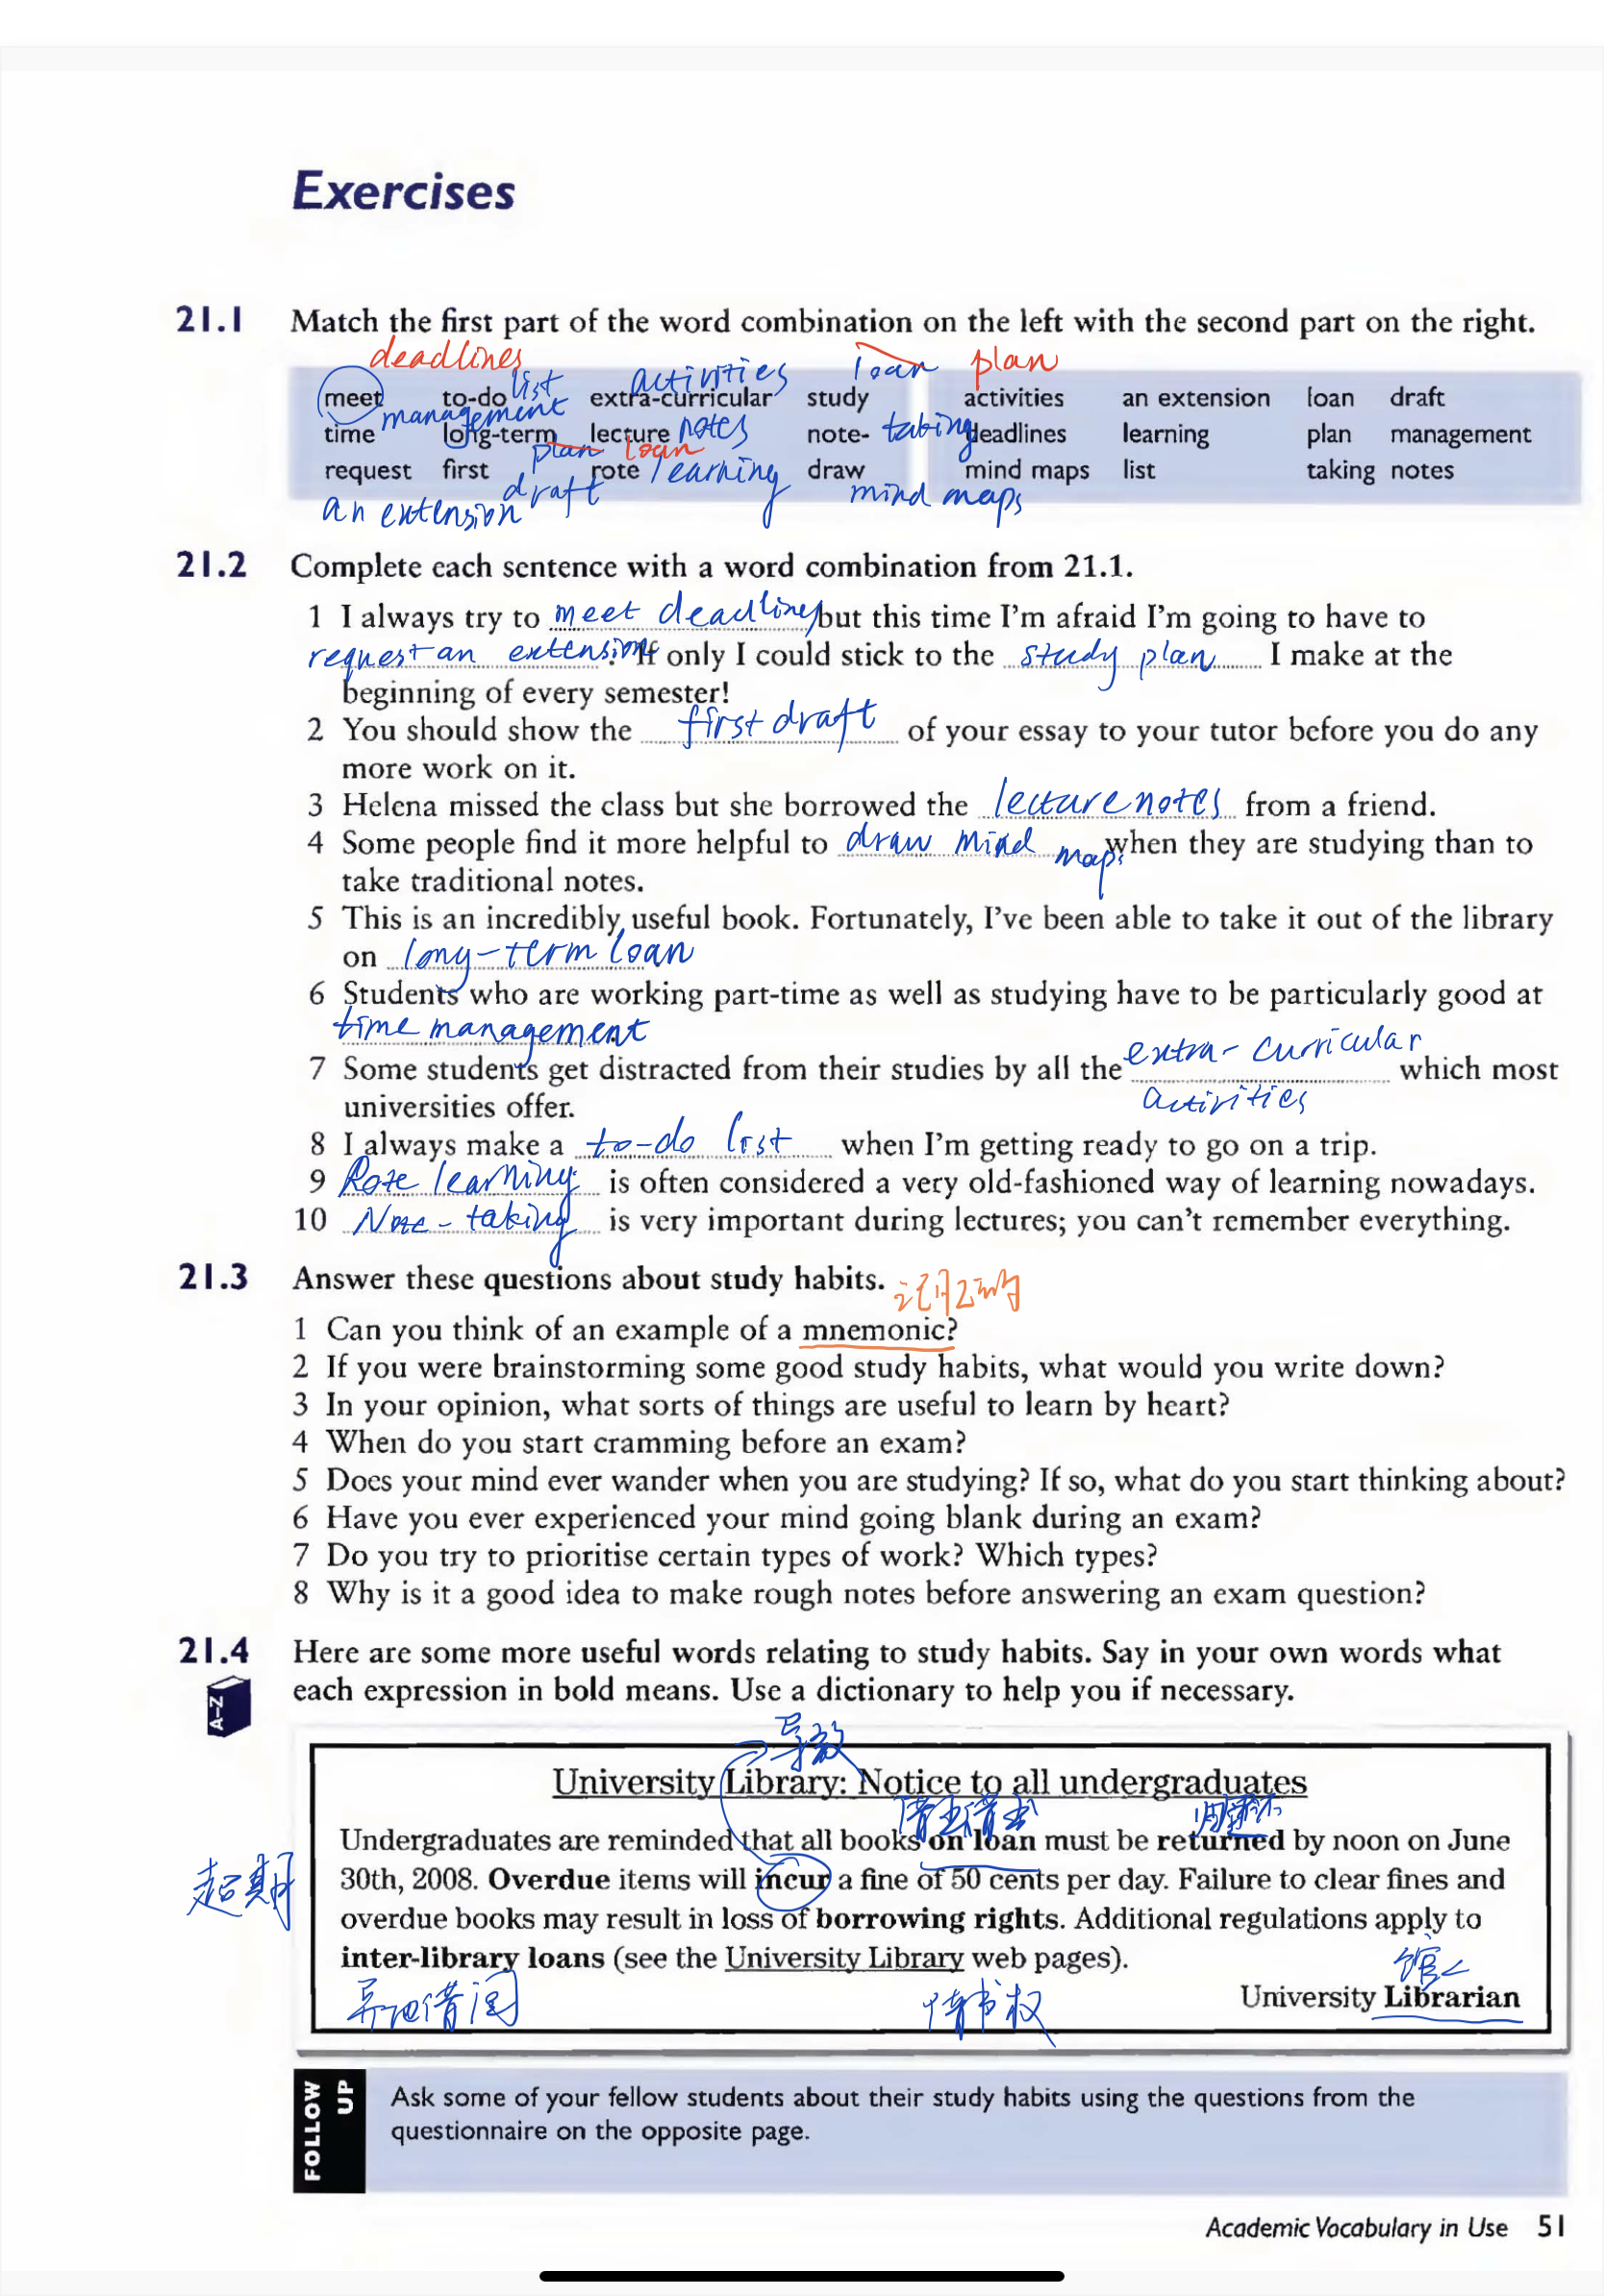 Exercises
21.1 Match the first part of the word combination on the left with the second part on the right.
deadlines loan plan
list activities
meet to-do extra-curricular study activities an extension loan draft
management notes taking
time long-term lecture note- deadlines learning plan management
plan loan
request first rote learning draw mind maps list taking notes
an extension draft mind maps
21.2 Complete each sentence with a word combination from 21.1.
1 I always try to meet deadlines but this time I'm afraid I'm going to have to
request an extension. If only I could stick to the study plan I make at the
beginning of every semester!
2 You should show the first draft of your essay to your tutor before you do any
more work on it.
3 Helena missed the class but she borrowed the lecture notes from a friend.
4 Some people find it more helpful to draw mind maps when they are studying than to
take traditional notes.
5 This is an incredibly useful book. Fortunately, I've been able to take it out of the library
on long-term loan
6 Students who are working part-time as well as studying have to be particularly good at
time management
7 Some students get distracted from their studies by all the extra-curricular which most
activities
universities offer.
8 I always make a to-do list when I'm getting ready to go on a trip.
9 Rote learning is often considered a very old-fashioned way of learning nowadays.
10 Note-taking is very important during lectures; you can't remember everything.
21.3 Answer these questions about study habits.
1 Can you think of an example of a mnemonic?
2 If you were brainstorming some good study habits, what would you write down?
3 In your opinion, what sorts of things are useful to learn by heart?
4 When do you start cramming before an exam?
5 Does your mind ever wander when you are studying? If so, what do you start thinking about?
6 Have you ever experienced your mind going blank during an exam?
7 Do you try to prioritise certain types of work? Which types?
8 Why is it a good idea to make rough notes before answering an exam question?
21.4 Here are some more useful words relating to study habits. Say in your own words what
A-Z
each expression in bold means. Use a dictionary to help you if necessary.
导致
University Library: Notice to all undergraduates
Undergraduates are reminded that all books on loan must be returned by noon on June
超期
30th, 2008. Overdue items will incur a fine of 50 cents per day. Failure to clear fines and
overdue books may result in loss of borrowing rights. Additional regulations apply to
inter-library loans (see the University Library web pages).
异地借阅 借书权
University Librarian
FOLLOW UP
Ask some of your fellow students about their study habits using the questions from the
questionnaire on the opposite page.
Academic Vocabulary in Use 51